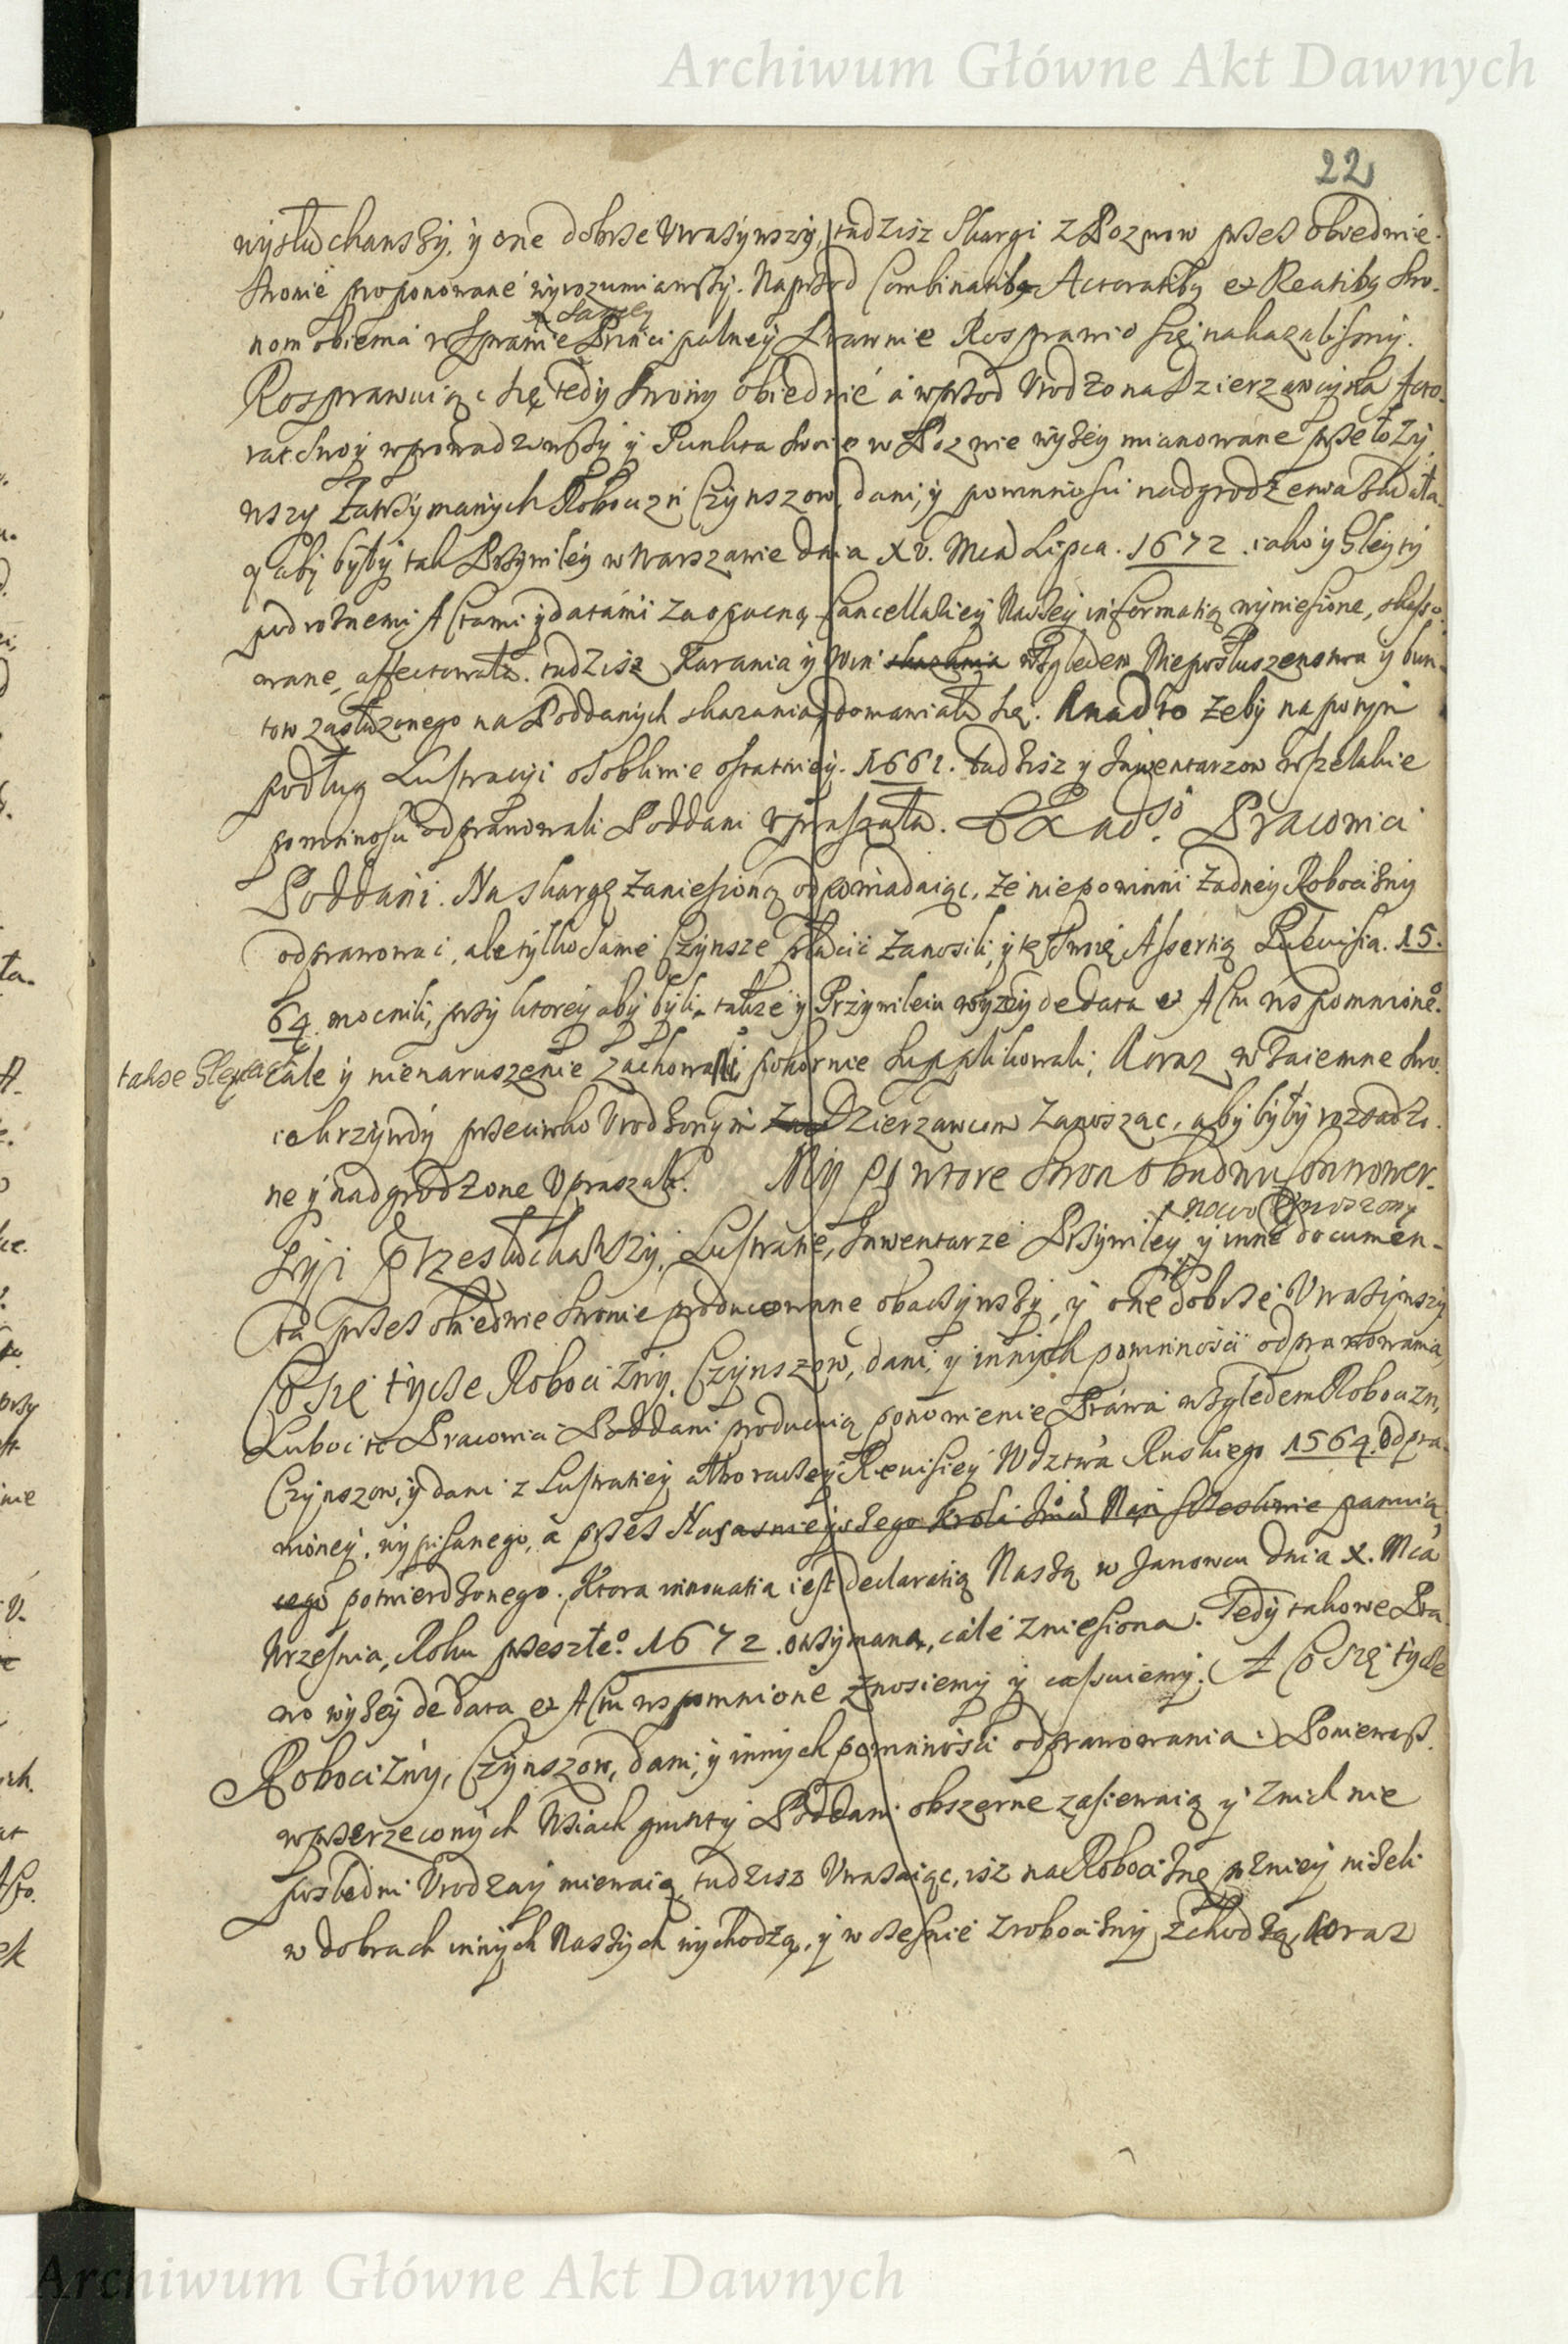 Archiwum Główne Akt Dawnych
22
wysłuchawszy, y one dobrze Uważywszy, tudzisz Skargi z Pozwow przez obiedwie
stronie proponowané wyrozumiawszy. Naprzod Combinatiby Actoratiby et Reatiby stro-
samey
nom obiema w Sprawie Principalney Prawnie Rosprawić się nakazalismy.
Rosprawuiąc się tedy strony obiedwié á wprzod Urodzona Dzierzawczyna Acto-
rat swoy wprowadziwszy y Punkta swoie w Pozwie wyżey mianowane przełoży-
wszy Zatrzymanych Roboczizn Czynszow, dani, y powinności nadgrodzenia żądała
y aby były tak Przywiley w Warszawie dnia XV. Mca Lipca. 1672. iako y Gleyty
pod rożnemi Actami y datámi za opaczną Cancellariey Naszey informatią wyniesione, skasso-
wane, affectowała. tudzisz Karania y Win skazania względem Nieposłuszenstwa y bun-
tow zasłużonego na Poddanych skazania domawiała się. A nadto żeby na potym
podług Lustracyi osobliwie ostatniey. 1661. tudzisz y Inwentarzow wszelakie
powinności odprawowali Poddani Upraszała. Ex ad.so Pracowici
Poddani. Na skargę zaniesioną odpowiadaiąc, że niepowinni żadney Robocizny
odprawować, ale tylko same Czynsze płacić zanosili, y tę swoię Assertią Rewisią. 15.
64. mocnili, przy ktorey aby byli takze y Przywileiu wyzey de data et Actu wspomnione.o
takze Gleyta cale y nienaruszenie zachowani pokornie supplikowali, A oraz wzaiemne swo-
ie krzywdy przeciwko Urodzonym Dzierzawcom zanosząc, aby były rozsądzo-
ne y nadgrodzone Upraszali. My powtore stron obudwu Contrower-
nowo Wznoszony
syi Przesłuchawszy, Lustracie, Inwentarze Przywiley y inne documen-
ta przez obiedwie stronie producowane obaczywszy, y one dobrze Uważywszy
Co się tycze Robocizny, Czynszow, dani, y innych powinności odprawowania,
Lubo ci to Pracowici Poddani producuią ponowienie Práwa względem Roboczizn,
Czynszow, y dani z Lustratiey albo raczey Rewisiey Wdztwá Ruskiego 1564. odpra-
wioney, wypisanego, a przez Nayiasnieyszego Krola Jmci Nam szczesliwie panuią
cego potwierdzonego. Ktora innouatia iest declaratią Naszą w Janowcu dnia X. Mcá
Września, Roku przeszłe.o 1672. otrzymana, cale zniesiona. Tedy takowe Pra-
wo wyżey de data et Actu wspomnione znosiemy y cassuiemy. (A Co się tycze
Robocizny, Czynszow, dani, y innych powinności odprawowania.) Ponieważ
w przerzeconych Wsiach grunty Poddani obszerne zasiewaią y z nich nie
posledni Urodzay miewaią, tudzisz Uważaiąc, isz na Robociznę pozniey niżeli
w dobrach innych Naszych wychodzą, y w czesnie z robocizny zchodzą, Aoraz
Archiwum Główne Akt Dawnych